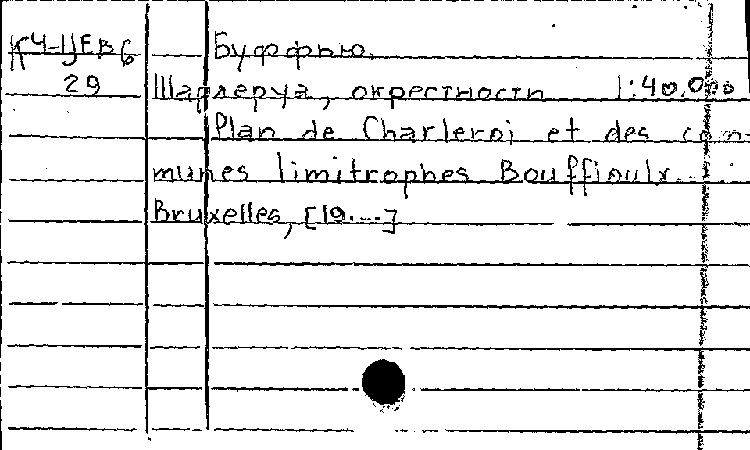 К4-ЦЕВ 6
29
Буффью.
Шарлеруа, окрестности 1:40.000
Plan de Charleroi et des com-
munes limitrophes Bouffioulx...
Bruxelles, [19....]